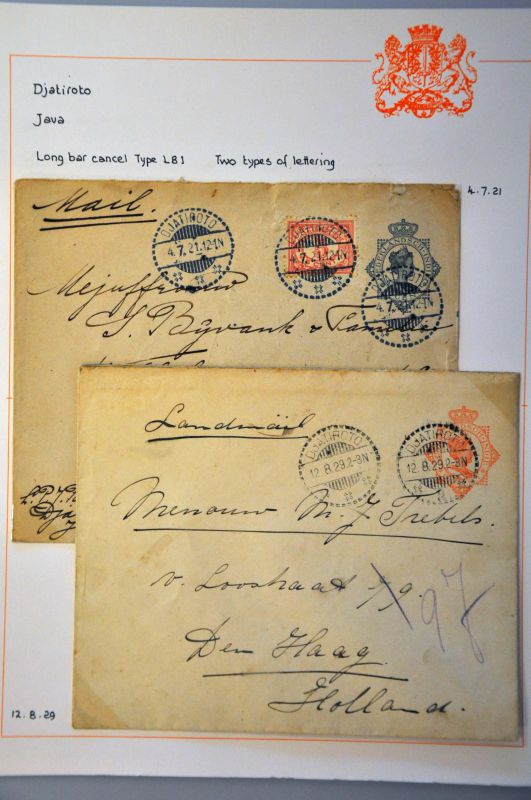 Djatiroto
Java
Long bar cancel Type LB1 Two types of lettering
4.7.21
Mail.
DJATIROTO
4.7.21.12-1N
4.7.21.12-1N
DJATIROTO
4.7.21.12-1N
Mejuffrouw
S. Bijvank
Landmail
DJATIROTO
12.8.29.2-3N
DJATIROTO
12.8.29.2-3N
Mevrouw M. J. Trebels.
v. Loostraat
97
Den Haag
Holland.
12.8.29